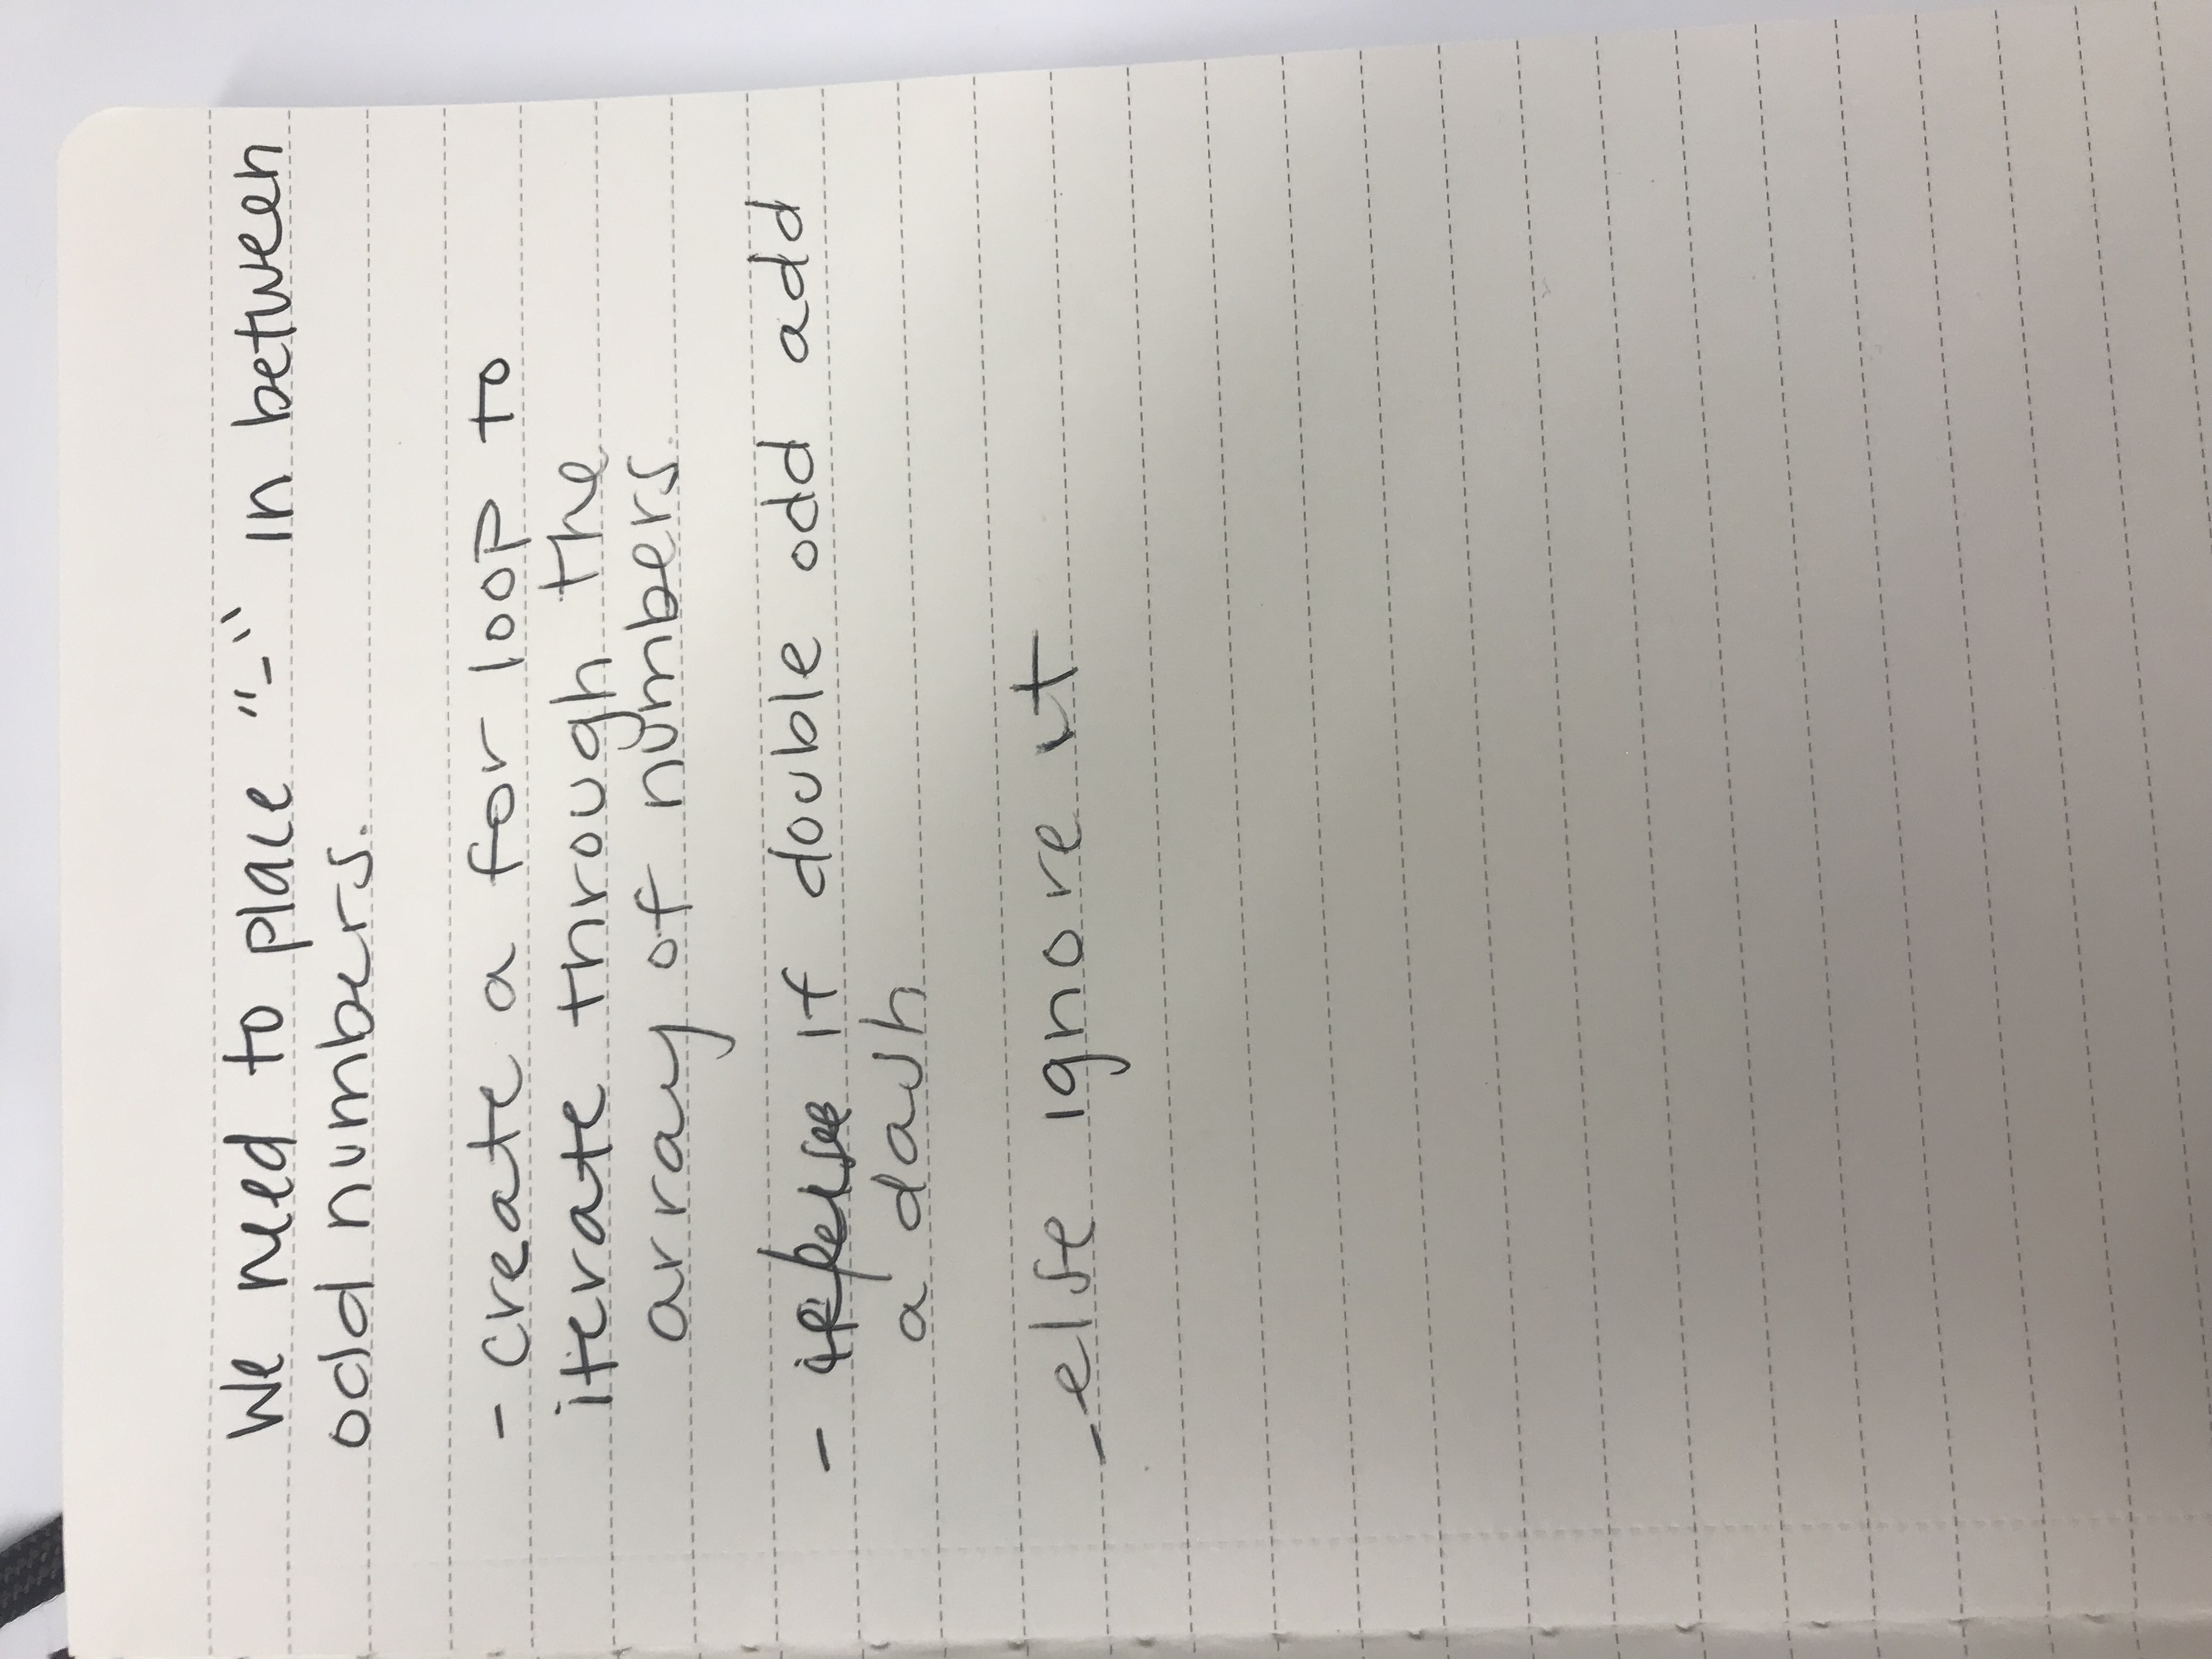 We need to place "-" in between
odd numbers.
- create a for loop to
iterate through the
array of numbers.
- if/else if double odd add
a dash
- else ignore it